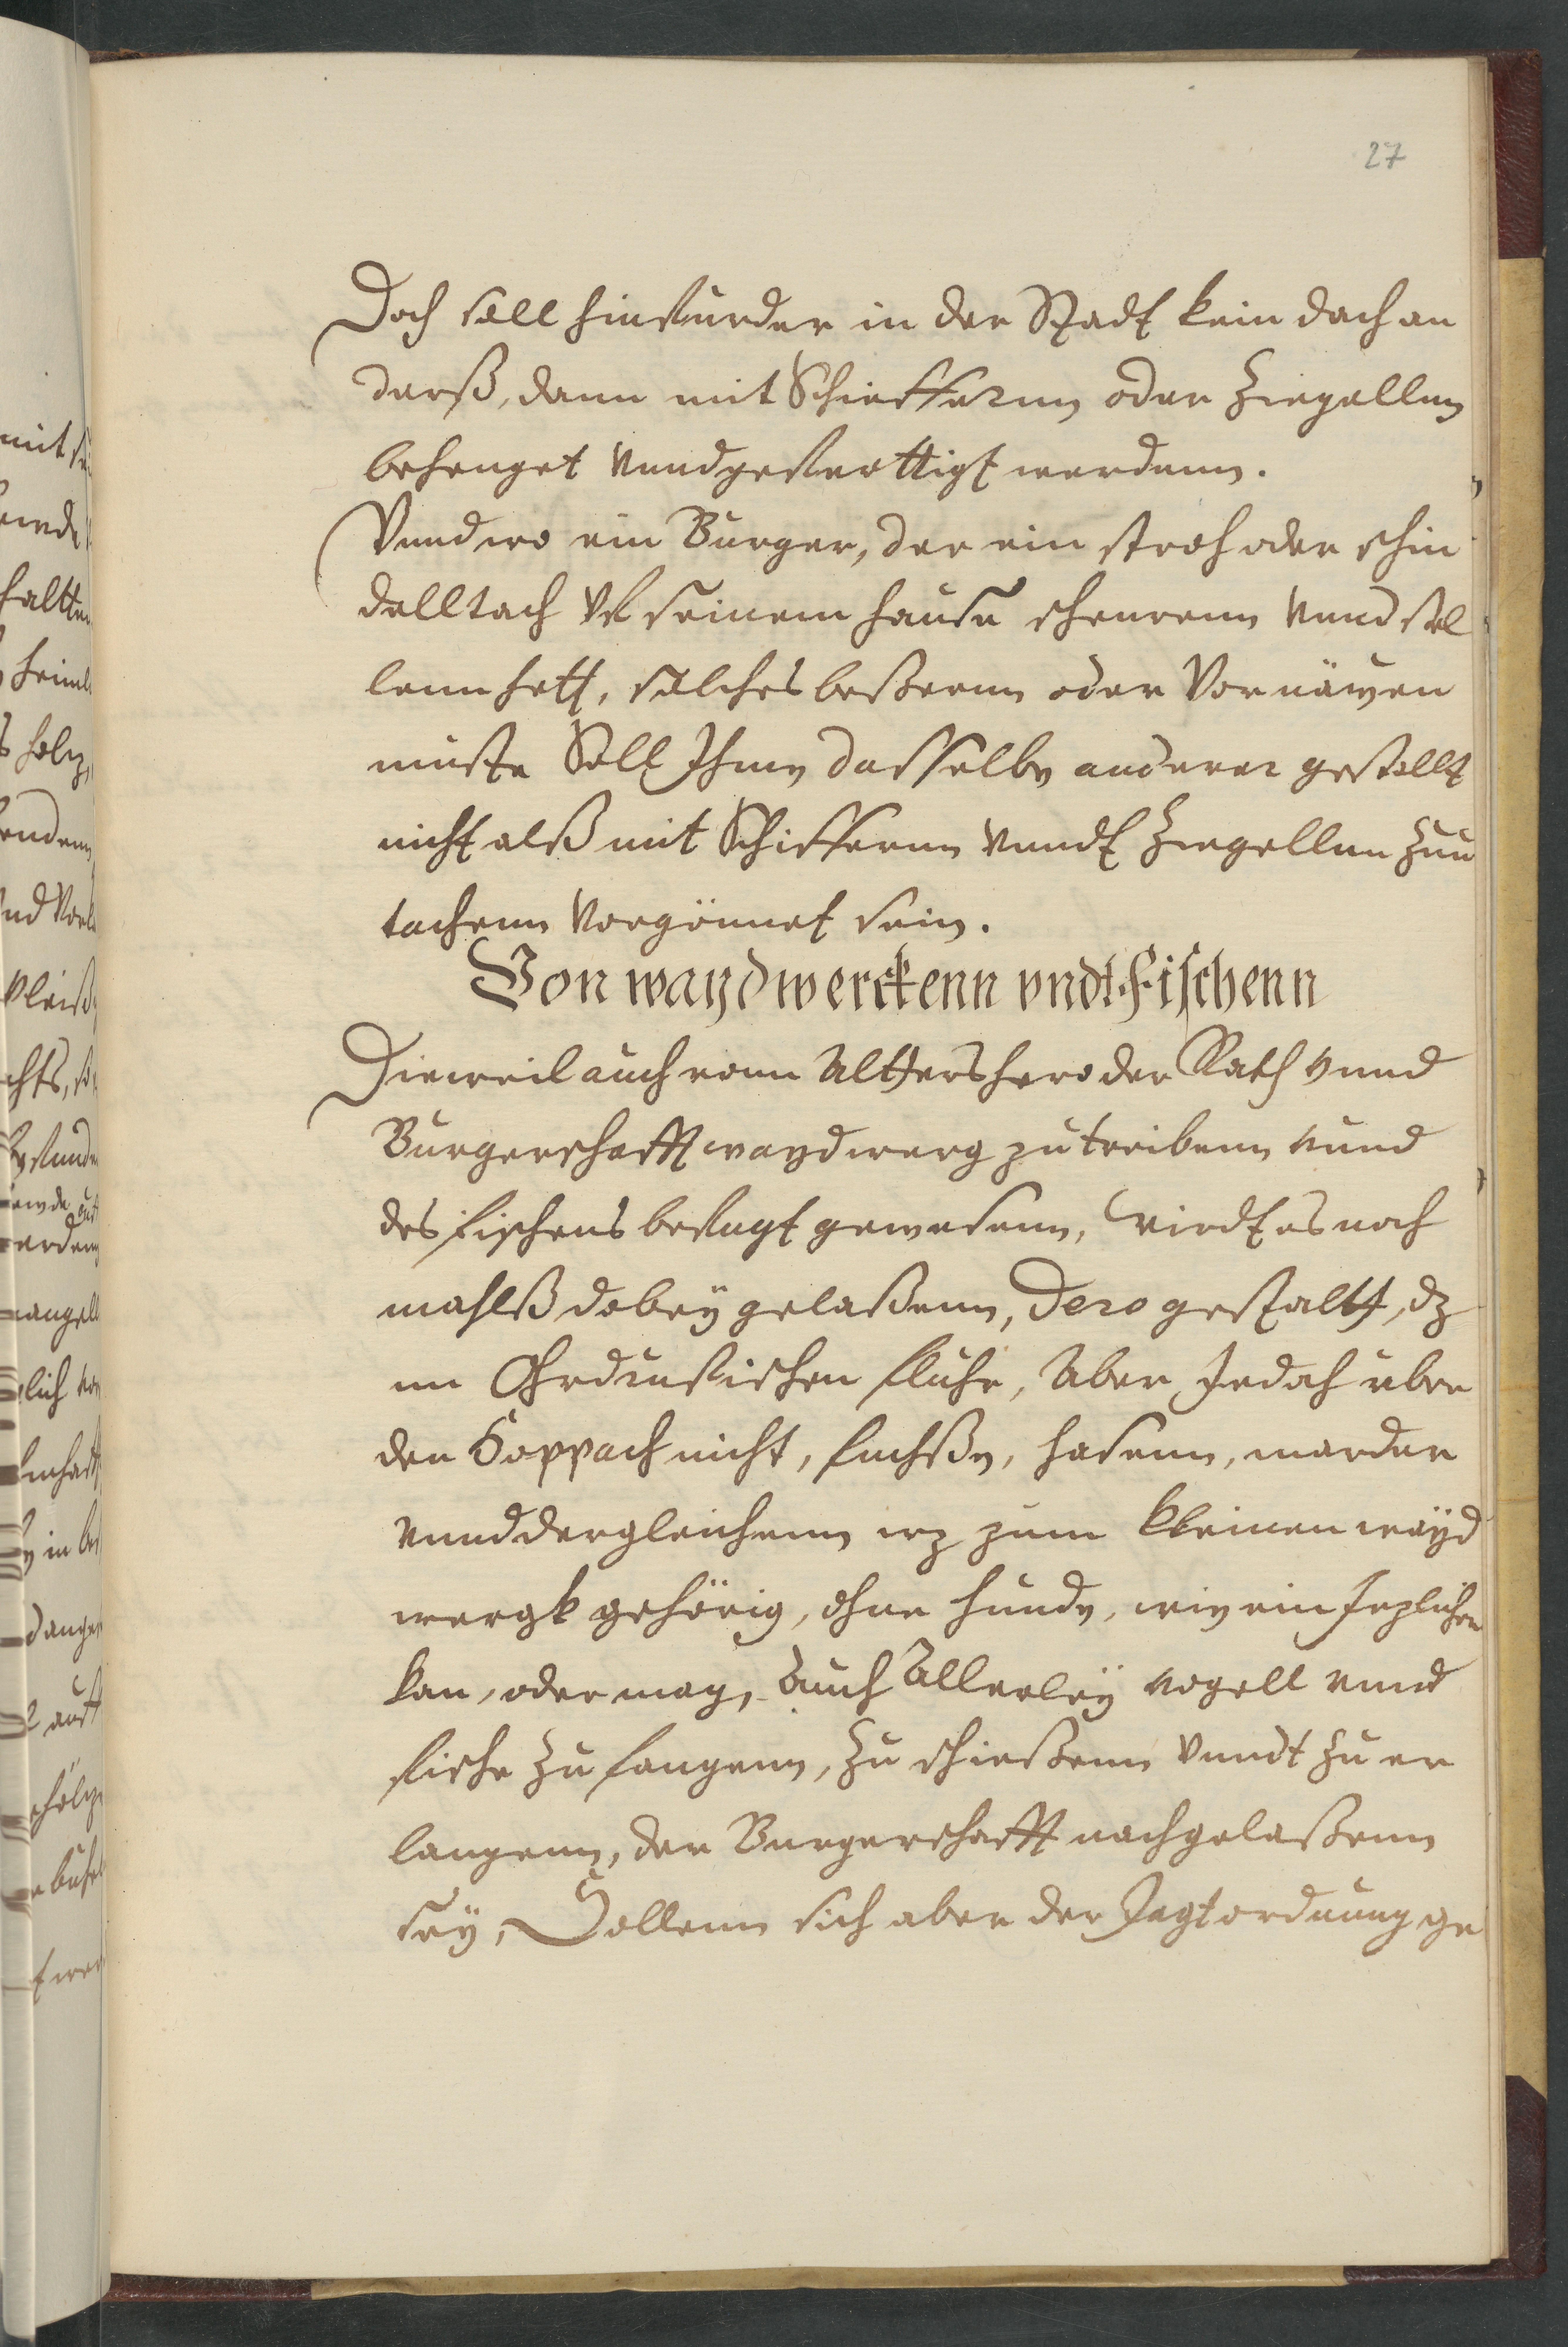 27
Doch soll hinfurder in der Stadt kein dach an
derß, dann mit Schieffernn oder Ziegellnn
behenget vnnd gefertttigt werdenn.
Vnnd wo ein Burger, der ein stroh oder schin
delltach vf seinem hause scheurenn vnnd stel
lenn hett, solches beßernn oder Vornäwen
muste Soll Ihme dasselbe anderer gestallt
nicht alß mit Schiffernn vnndt Ziegellnn Zuu
tachenn vorgönnet sein.
Von waydwerckenn vndt Fischenn
Dieweil auch vonn Alttershero der Rath vnnd
Burgerschafft waydwerg zu treibenn vnnd
des fischens befugt gewesenn, Wirdt es noch
mahlß dabey gelaßenn, Dero gestaltt, dz
im Ohrdrufischen fluhr, Aber Jedoch vber
den Koppach nicht, fuchße, hasenn, marder
vnnd dergleichenn wz zum kleinen wayd
wergk gehörig, ohne hunde, wie ein Jezlicher
kan, oder mag, Auch Allerley vogell vnnd
fische Zu fangenn, Zu schießenn vnndt Zu er
langenn, der Burgerschafft nachgelaßenn
sey, Sollenn sich aber der Jagtordnung ge